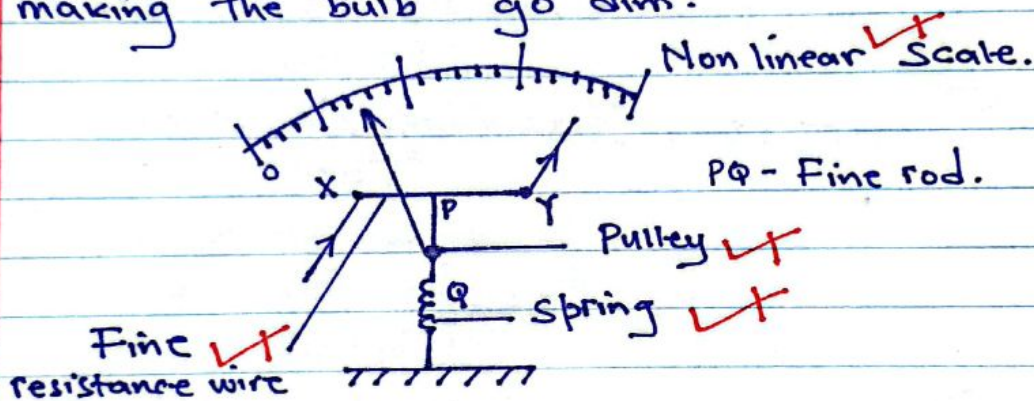 making the bulb go dim.
Non linear Scale.
0
X
P
Y
PQ - Fine rod.
Pulley
Q
Spring
Fine
resistance wire